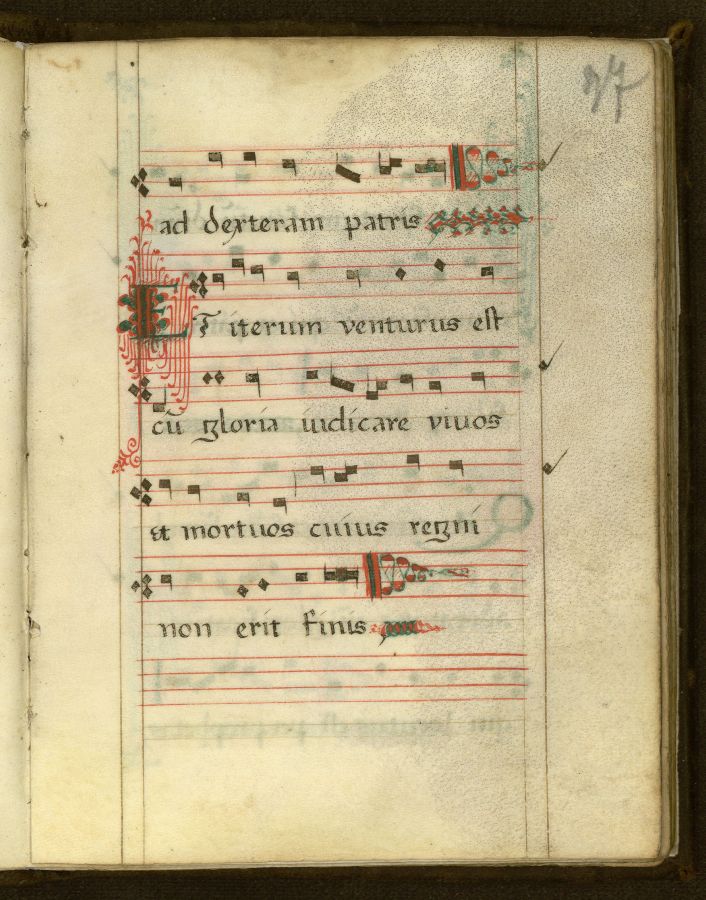 27
ad dexteram patris
ET iterum venturus est
cū gloria iudicare viuos
et mortuos cuius regni
non erit finis